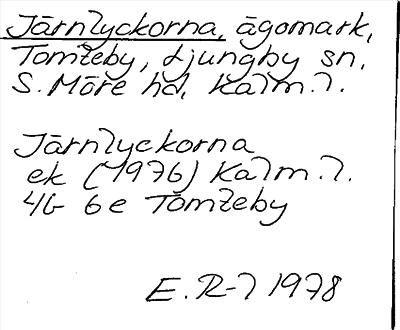 Järnlyckorna, ägomark,
Tombeby, Ljungby sn,
S. Möre hd, Kalm. l.
Järnlyckorna
ek (1976) Kalm. l.
4G 6e Tombeby
E. R-l 1978